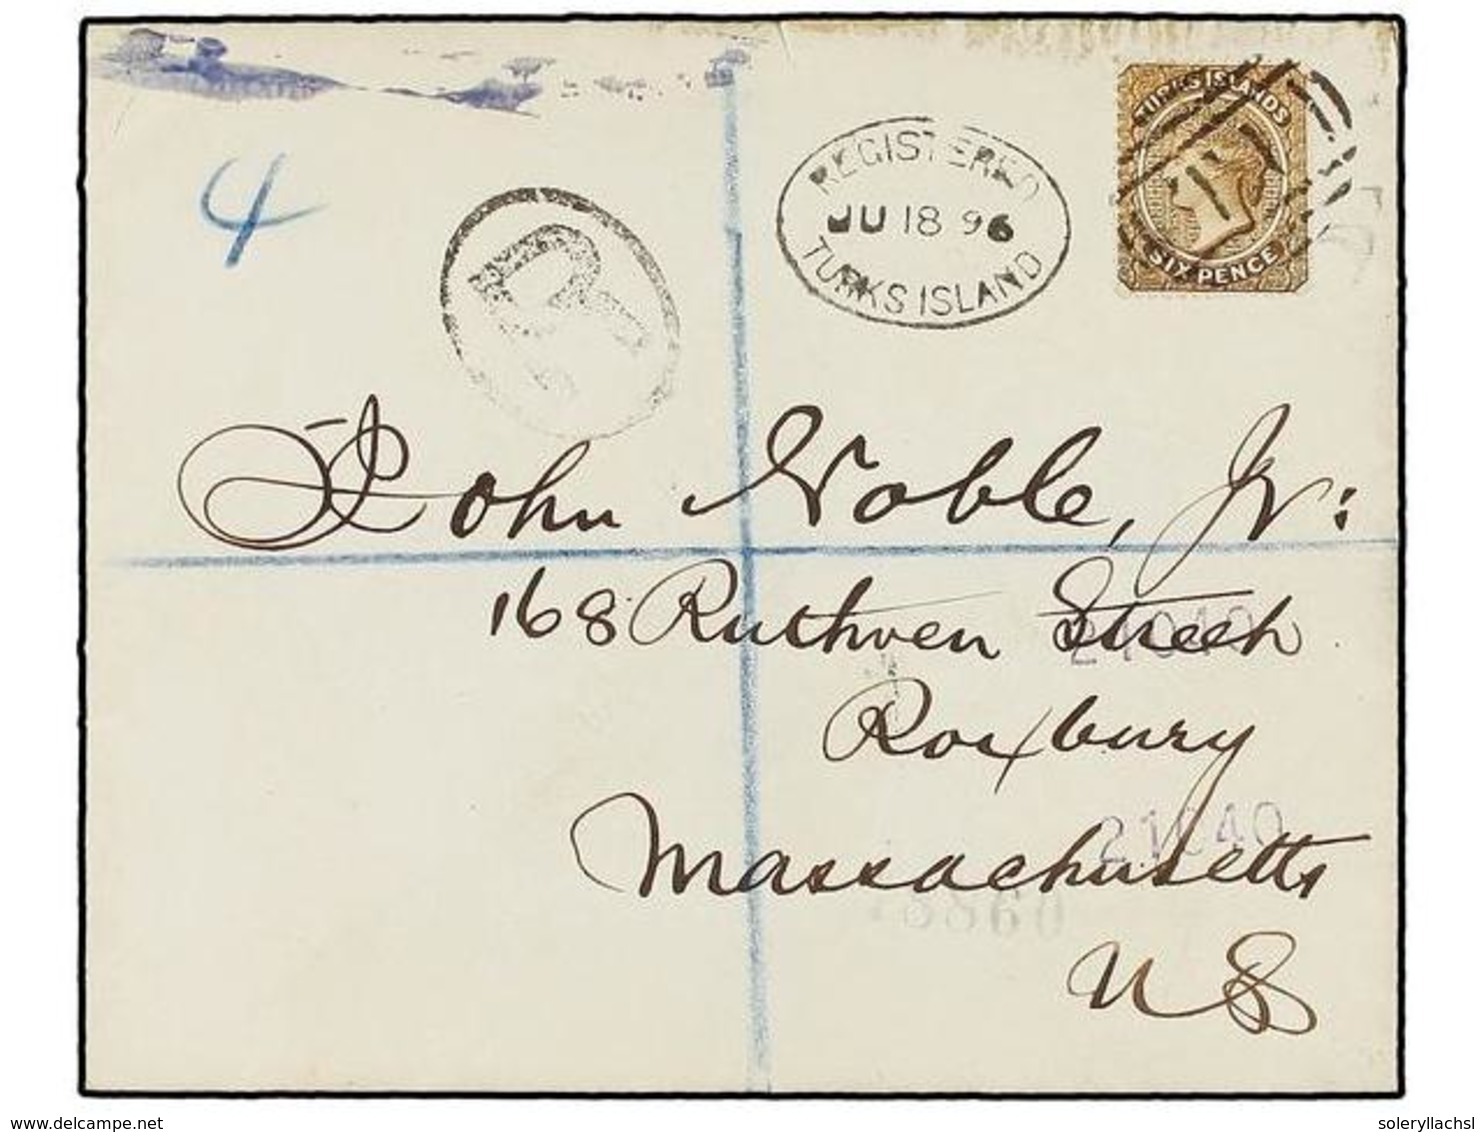 TURKS ISLANDS
SIX PENCE
REGISTERED
JU 18 96
TURKS ISLAND
4
R
John Noble, Jr:
168 Ruthven Street
21040
Roxbury
21040
Massachusetts
U S
soleryllachsl